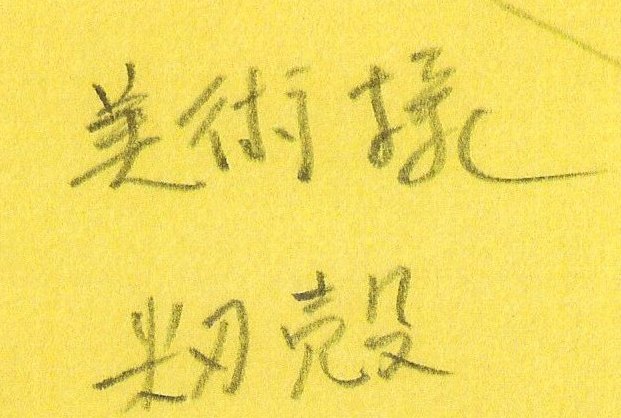 美術様
籾殻